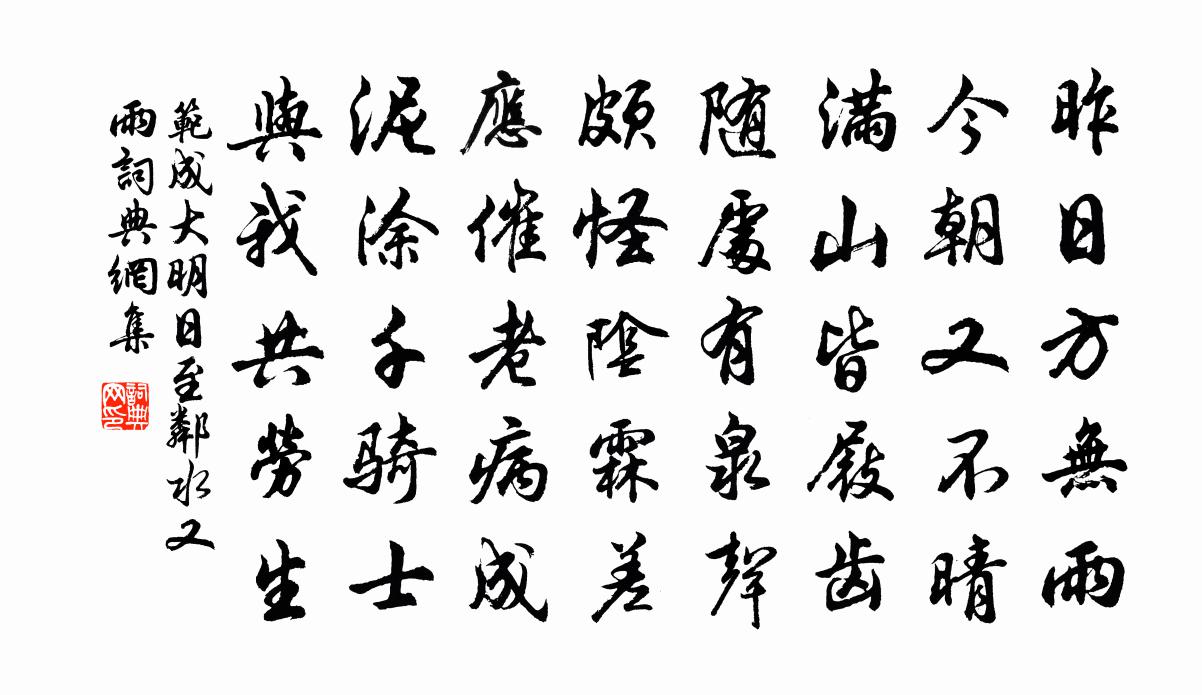 昨日方無雨
今朝又不晴
满山皆屐齿
随處有泉聲
頗怪陰霖差
應催老病成
泥涂千騎士
與我共勞生
範成大明日至鄰水又
雨詞典網集
詞典網印